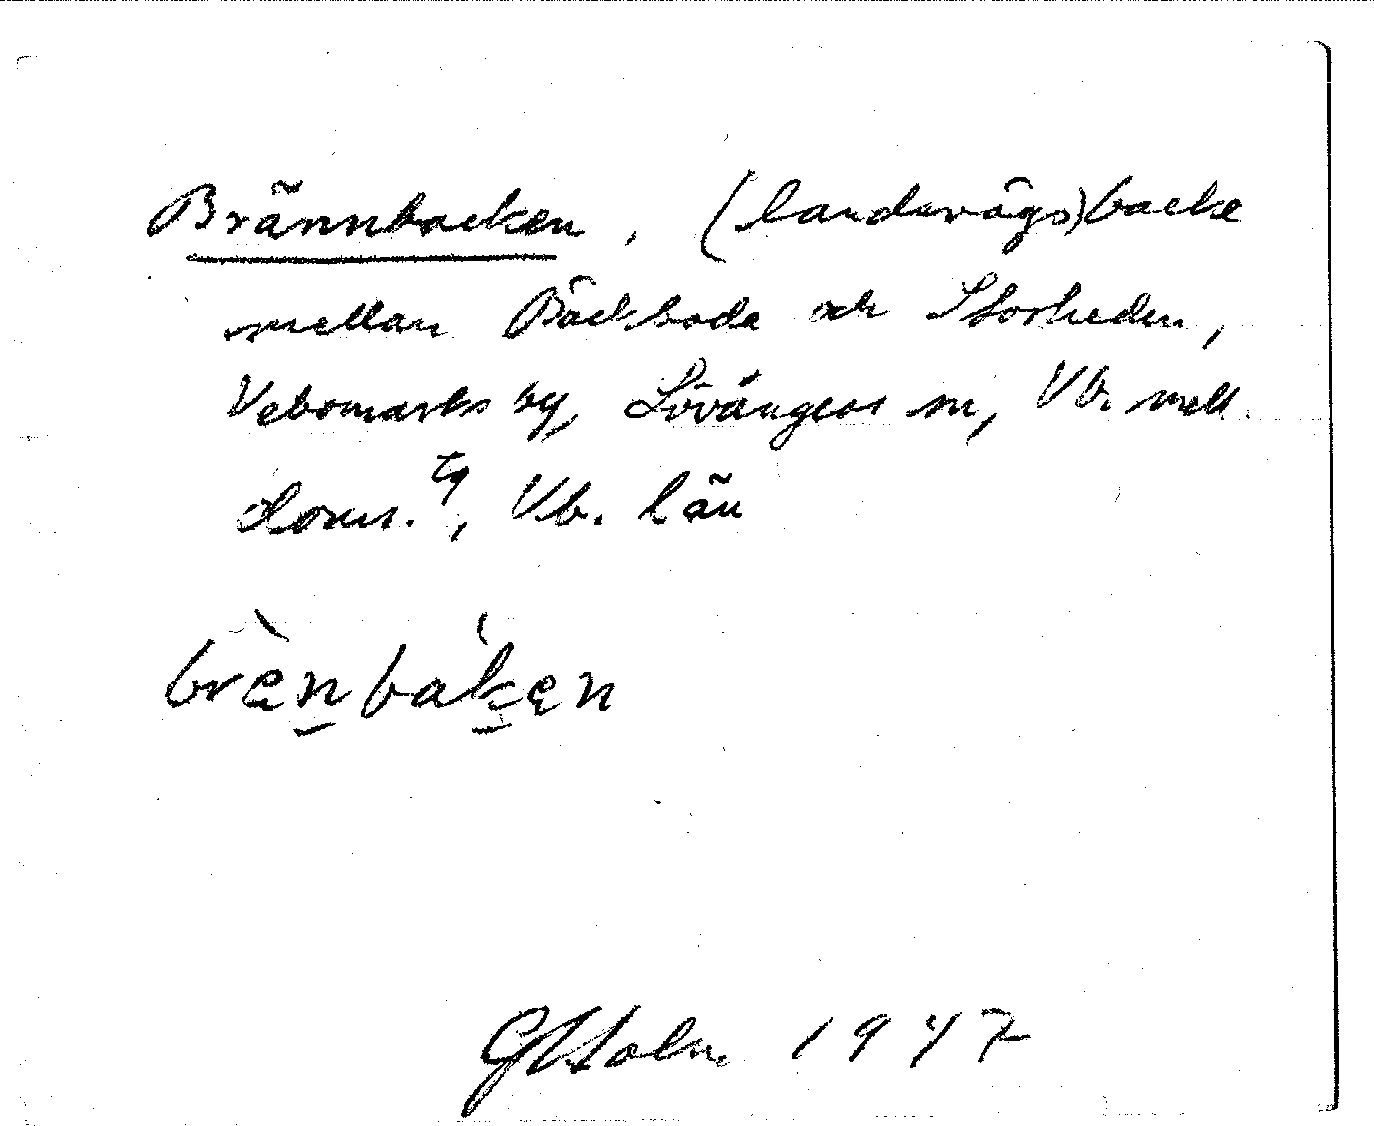 Brännbacken, (landsvägs)backe
mellan Bäckboda och Storheden,
Vebomarks by, Lövångers sn, Vb. mell.
doms. tg, Vb. län
brènbáken
G Holm 1947